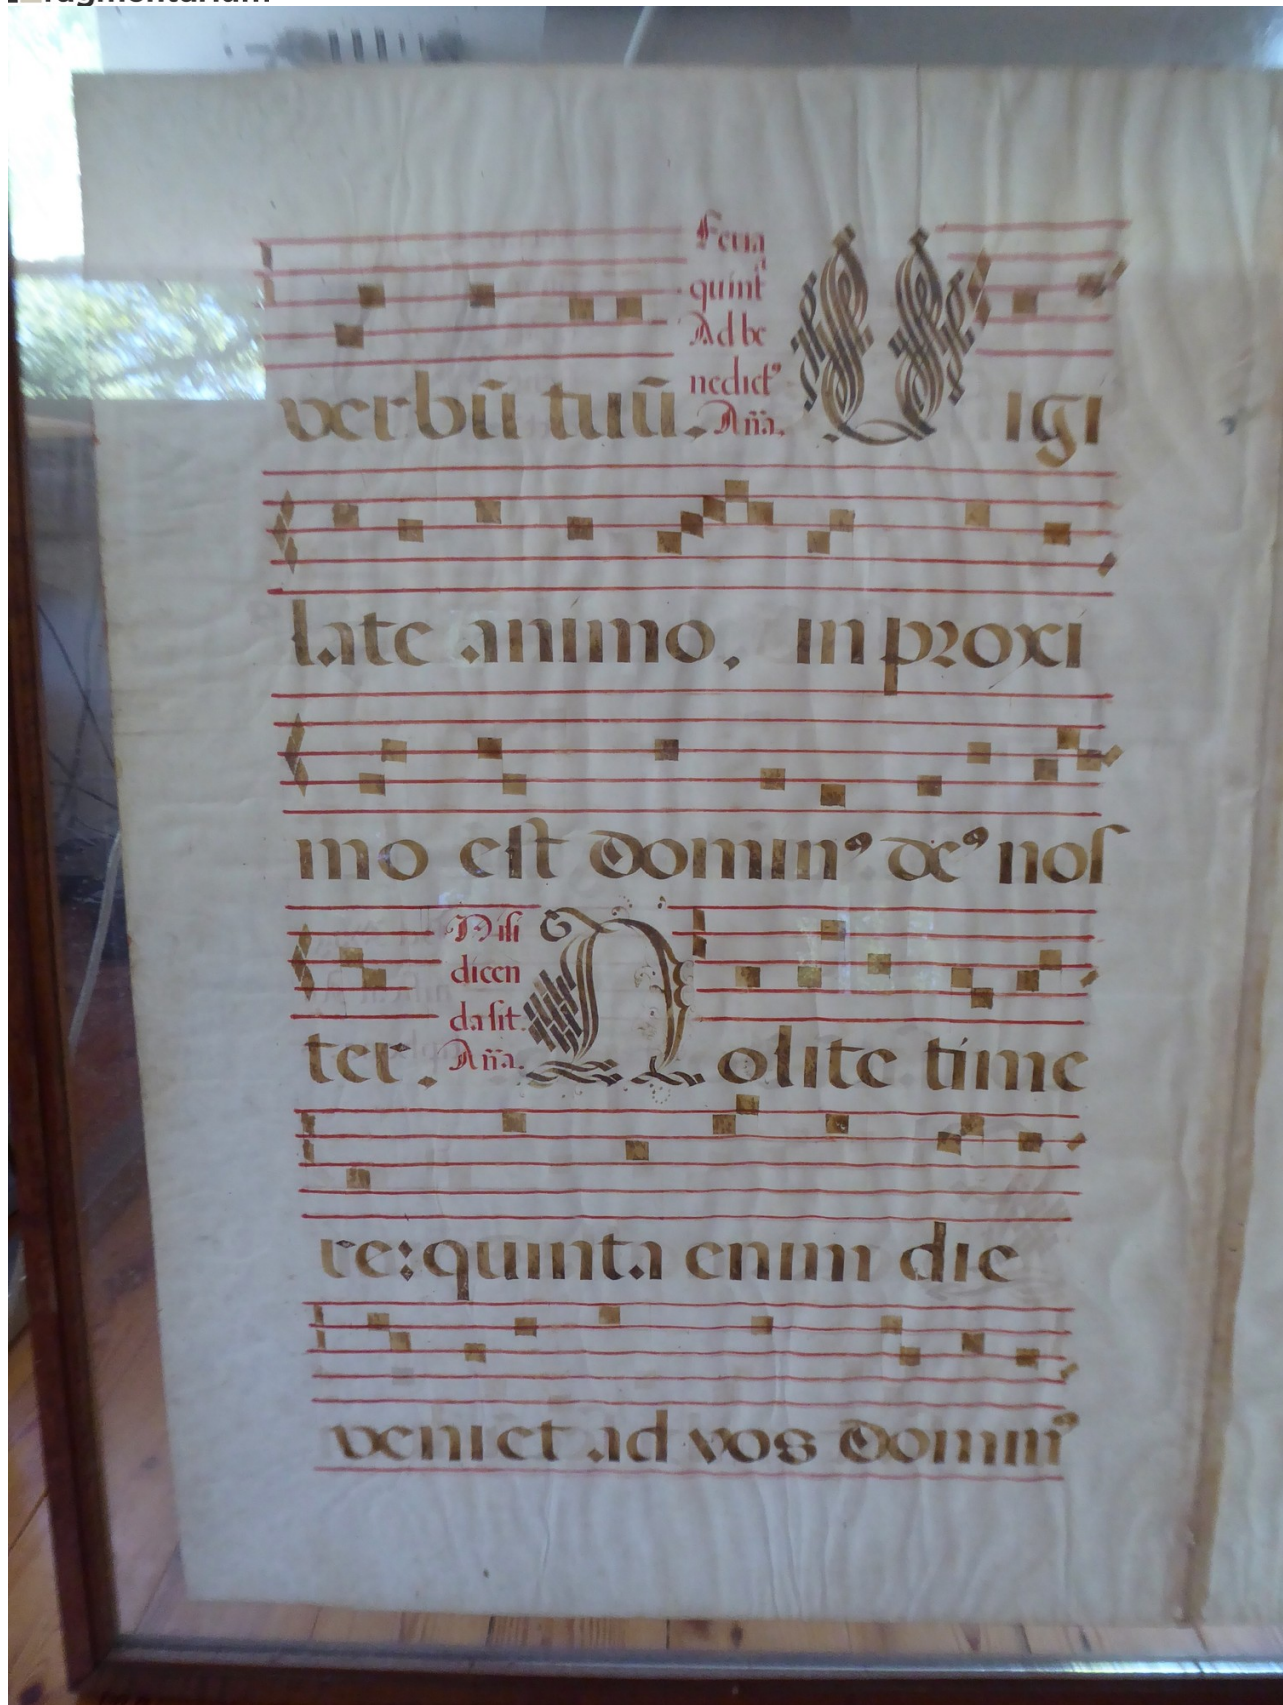 verbū tuū. Feria quint^a Ad be nedict⁹ Añа. VIgi
late animo, in proxi
mo est domin⁹ de⁹ nos
ter. Nisi dicen da sit. Aña. Nolite time
re: quinta enim die
veniet ad vos domin⁹